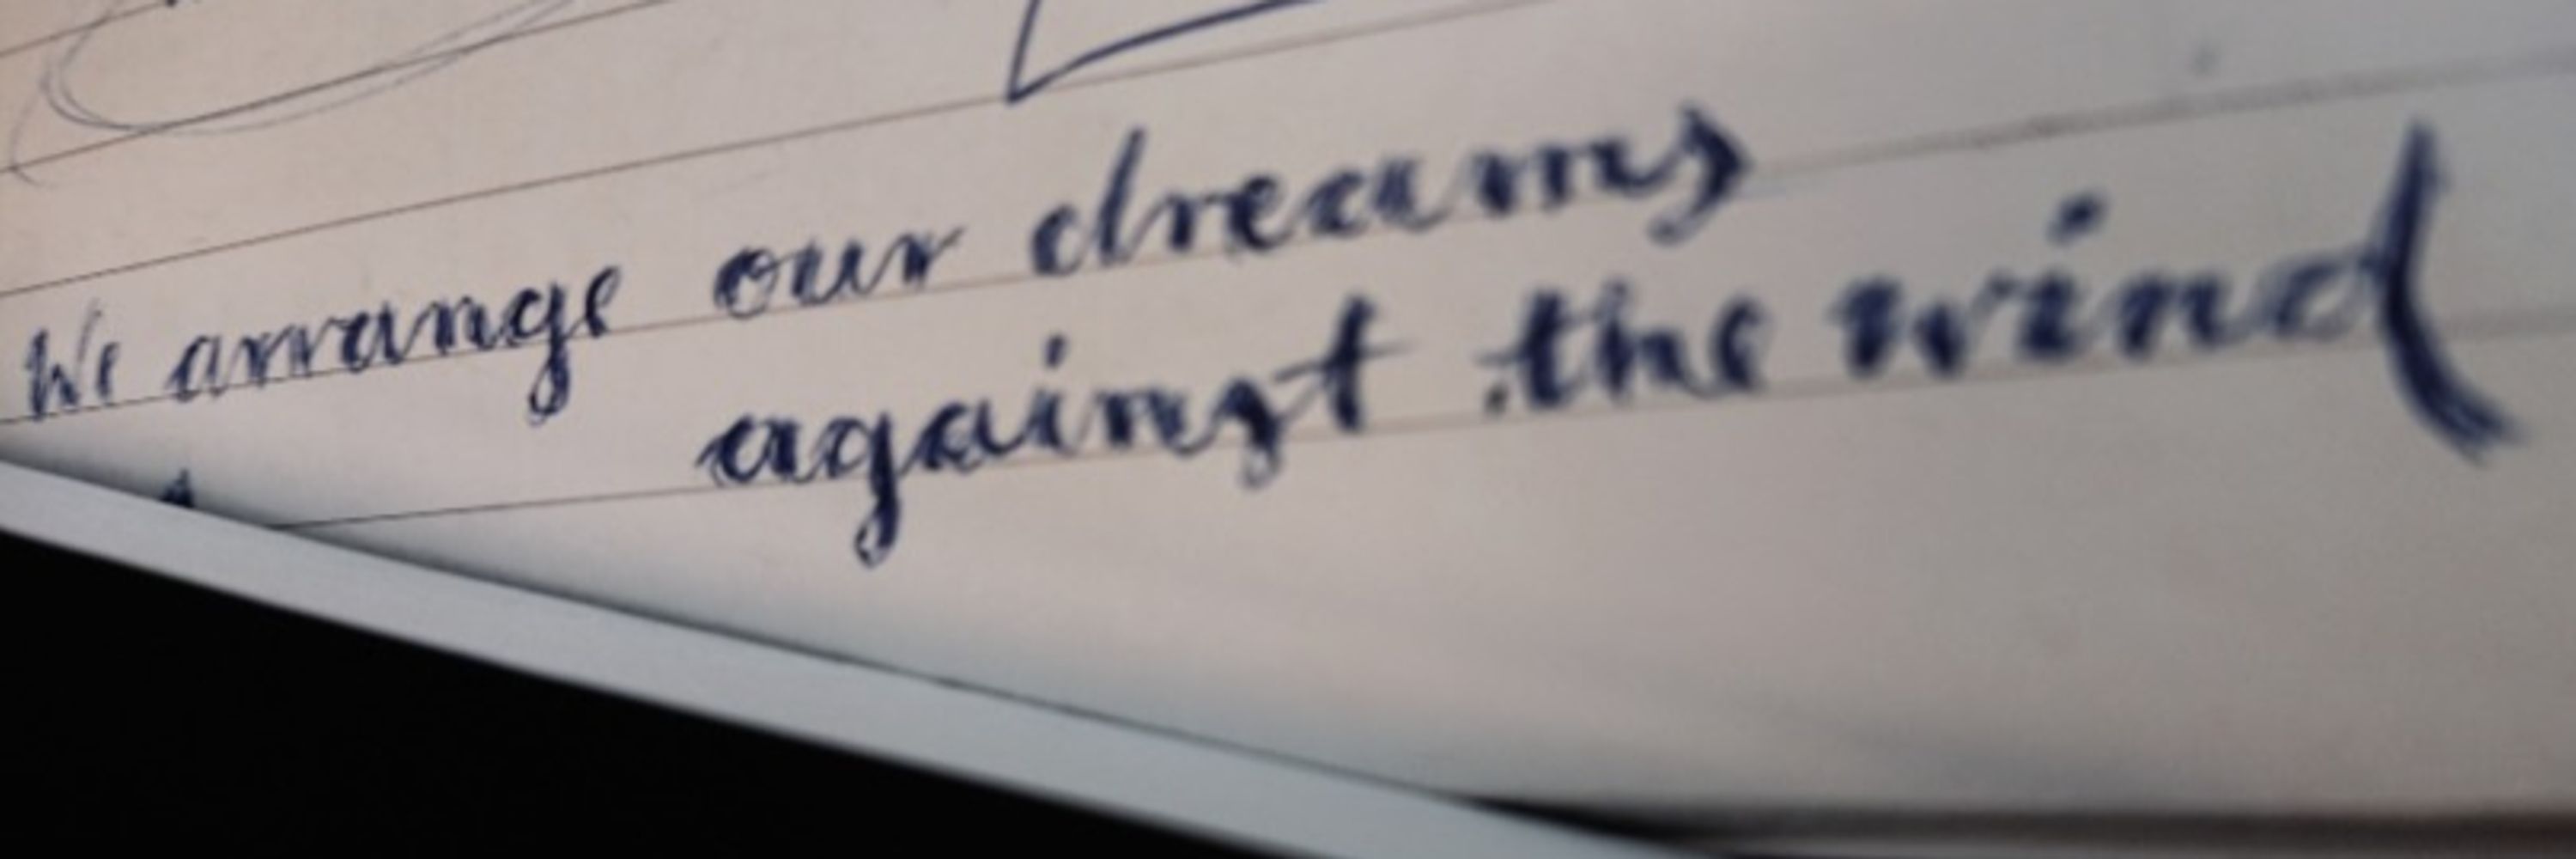 We arrange our dreams
against the wind